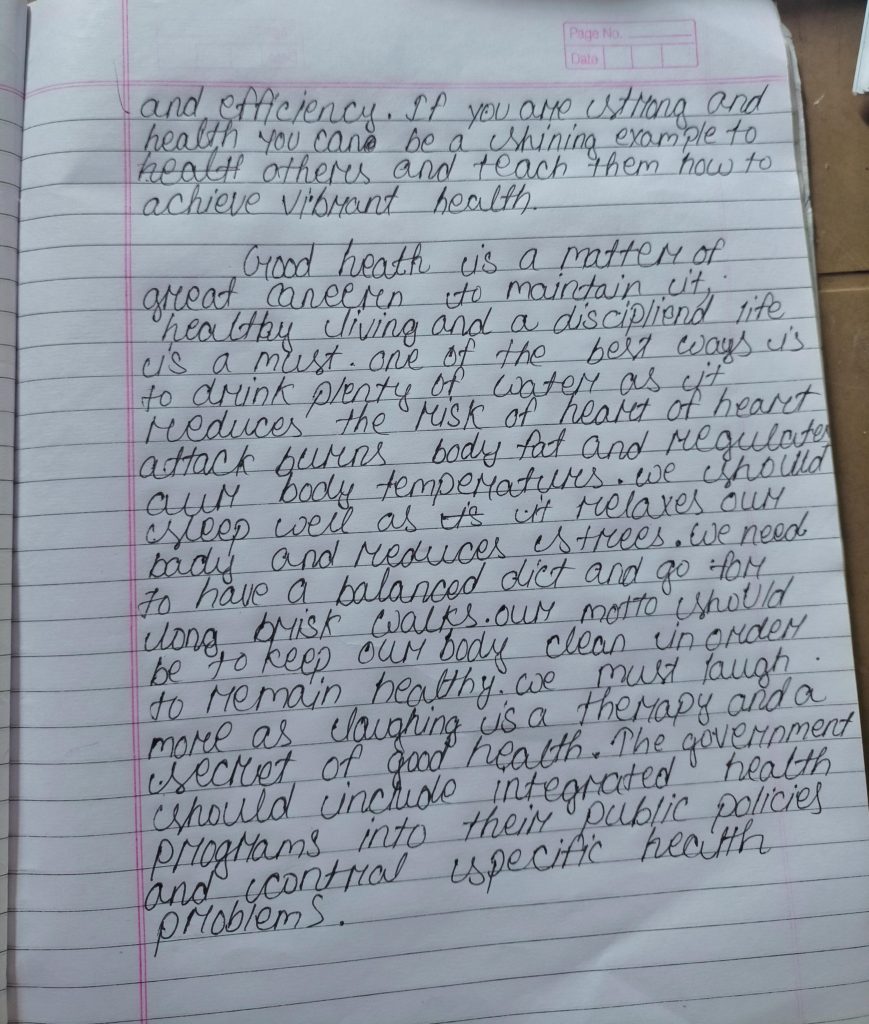 Page No.
Date
and efficiency. If you are strong and
health you can be a shining example to
others and teach them how to
achieve vibrant health.
Good heath is a matter of
great caneern to maintain it,
healthy living and a discipliend life
is a must. one of the best ways is
to drink plenty of water as it
reduces the risk of heart of heart
attack burns body fat and regulates
aur body temperaturs. we should
sleep well as it relaxes our
bady and reduces strees. we need
to have a balanced dict and go for
long brisk walks. our motto should
be to keep our body clean in order
to remain healthy. we must laugh
more as laughing is a therapy and a
secret of good health. The government
should include integrated health
programs into their public policies
and contral specific health
problems.